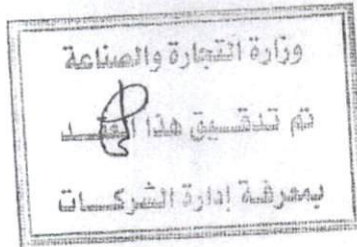 وزارة التجارة والصناعة
تم تدقيق هذا العقد
بمعرفة إدارة الشركات